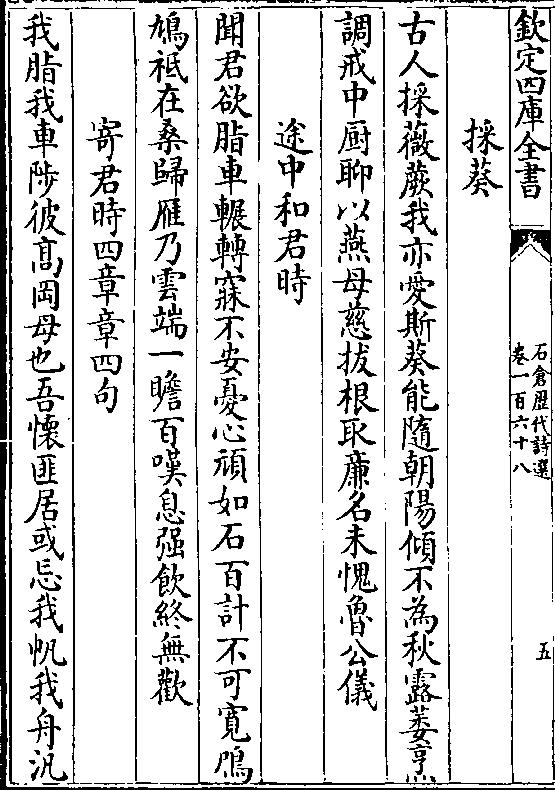 欽定四庫全書
石倉歴代詩選
卷一百六十八
五
採葵
古人採薇蕨我亦愛斯葵能隨朝陽傾不為秋露萎亨
調戒中厨聊以燕母慈拔根取廉名未愧魯公儀
途中和君時
聞君欲脂車輾轉寐不安憂心頑如石百計不可寛鳲
鳩祗在桑歸雁乃雲端一瞻百嘆息强飲終無歡
寄君時四章章四句
我脂我車陟彼高岡母也吾懐匪居或忘我帆我舟汎